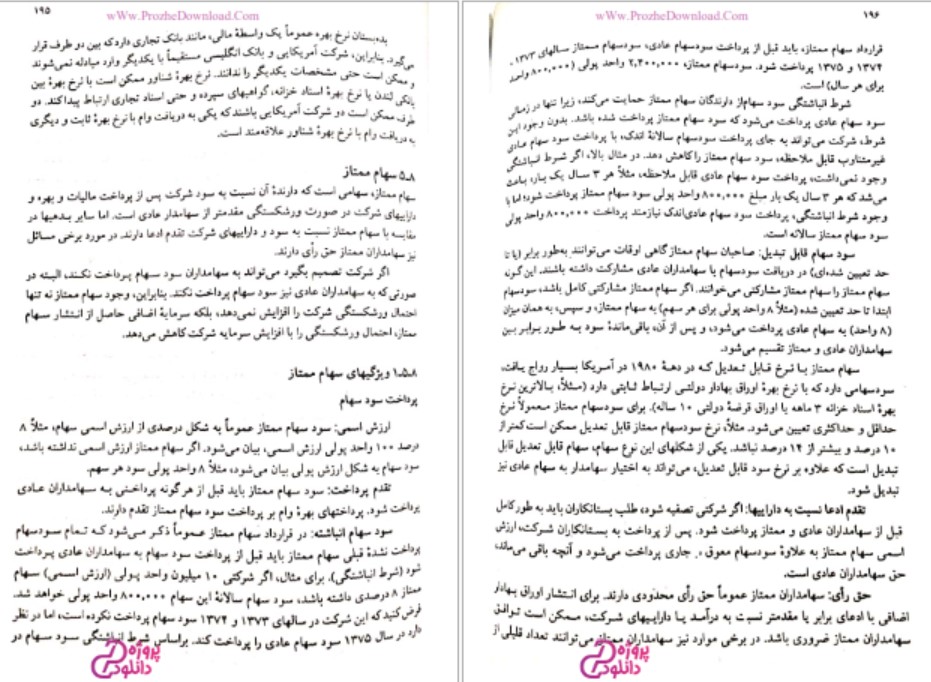 ۱۹۵
wWw.ProzheDownload.Com
بده‌بستان نرخ بهره عموماً یک واسطهٔ مالی، مانند بانک تجاری دارد که بین دو طرف قرار
می‌گیرد. بنابراین، شرکت آمریکایی و بانک انگلیسی مستقیماً با یکدیگر وارد مبادله نمی‌شوند
و ممکن است حتی مشخصات یکدیگر را ندانند. نرخ بهرهٔ شناور ممکن است با نرخ بهرهٔ بین
بانکی لندن یا نرخ بهرهٔ اسناد خزانه، گواهیهای سپرده و حتی اسناد تجاری ارتباط پیدا کند. دو
طرف ممکن است دو شرکت آمریکایی باشند که یکی به دریافت وام با نرخ بهرهٔ ثابت و دیگری
به دریافت وام با نرخ بهرهٔ شناور علاقه‌مند است.
۸ـ۵ سهام ممتاز
سهام ممتاز، سهامی است که دارندهٔ آن نسبت به سود شرکت پس از پرداخت مالیات و بهره و
داراییهای شرکت در صورت ورشکستگی مقدمتر از سهامدار عادی است. اما سایر بدهیها در
مقایسه با سهام ممتاز نسبت به سود و داراییهای شرکت تقدم ادعا دارند. در مورد برخی مسائل
نیز سهامداران ممتاز حق رأی دارند.
اگر شرکت تصمیم بگیرد می‌تواند به سهامداران سود سهام پرداخت نکند، البته در
صورتی که به سهامداران عادی نیز سود سهام پرداخت نکند. بنابراین، وجود سهام ممتاز نه تنها
احتمال ورشکستگی شرکت را افزایش نمی‌دهد، بلکه سرمایهٔ اضافی حاصل از انتشار سهام
ممتاز، احتمال ورشکستگی را با افزایش سرمایه شرکت کاهش می‌دهد.
۸ـ۵ـ۱ ویژگیهای سهام ممتاز
پرداخت سود سهام
ارزش اسمی: سود سهام ممتاز عموماً به شکل درصدی از ارزش اسمی سهام، مثلاً ۸
درصد ۱۰۰ واحد پولی ارزش اسمی، بیان می‌شود. اگر سهام ممتاز ارزش اسمی نداشته باشد،
سود سهام به شکل ارزش پولی بیان می‌شود، مثلاً ۸ واحد پولی سود هر سهم.
تقدم پرداخت: سود سهام ممتاز باید قبل از هرگونه پرداختی به سهامداران عادی
پرداخت شود. پرداختهای بهرهٔ وام بر پرداخت سود سهام ممتاز تقدم دارند.
سود سهام انباشته: در قرارداد سهام ممتاز عموماً ذکر می‌شود که تمام سودسهام
پرداخت نشدهٔ قبلی سهام ممتاز باید قبل از پرداخت سود سهام به سهامداران عادی پرداخت
شود (شرط انباشتگی). برای مثال، اگر شرکتی ۱۰ میلیون واحد پولی (ارزش اسمی) سهام
ممتاز ۸ درصدی داشته باشد، سود سهام سالانهٔ این سهام ۸۰۰,۰۰۰ واحد پولی خواهد شد.
فرض کنید که این شرکت در سالهای ۱۳۷۳ و ۱۳۷۴ سود سهام پرداخت نکرده است، اما در نظر
دارد در سال ۱۳۷۵ سود سهام عادی را پرداخت کند. براساس شرط انباشتگی سود سهام در
پروژه
دانلود
۱۹۶
wWw.ProzheDownload.Com
قرارداد سهام ممتاز، باید قبل از پرداخت سودسهام عادی، سودسهام ممتاز سالهای ۱۳۷۳،
۱۳۷۴ و ۱۳۷۵ پرداخت شود. سودسهام ممتاز، ۲,۴۰۰,۰۰۰ واحد پولی (۸۰۰,۰۰۰ واحد
برای هر سال) است.
شرط انباشتگی سود سهام از دارندگان سهام ممتاز حمایت می‌کند، زیرا تنها در زمانی
سود سهام عادی پرداخت می‌شود که سود سهام ممتاز پرداخت شده باشد. بدون وجود این
شرط، شرکت می‌تواند به جای پرداخت سودسهام سالانهٔ اندک، با پرداخت سود سهام عادی
غیرمتناوب قابل ملاحظه، سود سهام ممتاز را کاهش دهد. در مثال بالا، اگر شرط انباشتگی
وجود نمی‌داشت، پرداخت سود سهام عادی قابل ملاحظه، مثلاً هر ۳ سال یک بار، باعث
می‌شد که هر ۳ سال یک بار مبلغ ۸۰۰,۰۰۰ واحد پولی سود سهام ممتاز پرداخت شود؛ اما با
وجود شرط انباشتگی، پرداخت سود سهام عادی اندک نیازمند پرداخت ۸۰۰,۰۰۰ واحد پولی
سود سهام ممتاز سالانه است.
سود سهام قابل تبدیل: صاحبان سهام ممتاز گاهی اوقات می‌توانند به‌طور برابر (یا تا
حد تعیین شده‌ای) در دریافت سودسهام با سهامداران عادی مشارکت داشته باشند. این گونه
سهام ممتاز را سهام ممتاز مشارکتی می‌خوانند. اگر سهام ممتاز مشارکتی کامل باشد، سودسهام
ابتدا تا حد تعیین شده (مثلاً ۸ واحد پولی برای هر سهم) به سهام ممتاز، و سپس، به همان میزان
(۸ واحد) به سهام عادی پرداخت می‌شود، و پس از آن، باقی‌ماندهٔ سود به طور برابر بین
سهامداران عادی و ممتاز تقسیم می‌شود.
سهام ممتاز با نرخ قابل تعدیل که در دههٔ ۱۹۸۰ در آمریکا بسیار رواج یافت،
سودسهامی دارد که با نرخ بهرهٔ اوراق بهادار دولتی ارتباط ثابتی دارد (مثلاً، بالاترین نرخ
بهرهٔ اسناد خزانه ۳ ماهه یا اوراق قرضهٔ دولتی ۱۰ ساله). برای سودسهام ممتاز معمولاً نرخ
حداقل و حداکثری تعیین می‌شود. مثلاً، نرخ سودسهام ممتاز قابل تعدیل ممکن است کمتر از
۱۰ درصد و بیشتر از ۱۴ درصد نباشد. یکی از شکلهای این نوع سهام، سهام قابل تعدیل قابل
تبدیل است که علاوه بر نرخ سود قابل تعدیل، می‌تواند به اختیار سهامدار به سهام عادی نیز
تبدیل شود.
تقدم ادعا نسبت به داراییها: اگر شرکتی تصفیه شود، طلب بستانکاران باید به طور کامل
قبل از سهامداران عادی و ممتاز پرداخت شود. پس از پرداخت به بستانکاران شرکت، ارزش
اسمی سهام ممتاز به علاوهٔ سودسهام معوق و جاری پرداخت می‌شود و آنچه باقی می‌ماند،
حق سهامداران عادی است.
حق رأی: سهامداران ممتاز عموماً حق رأی محدودی دارند. برای انتشار اوراق بهادار
اضافی با ادعای برابر یا مقدمتر نسبت به درآمد یا داراییهای شرکت، ممکن است توافق
سهامداران ممتاز ضروری باشد. در برخی موارد نیز سهامداران ممتاز می‌توانند تعداد قلیلی از
پروژه
دانلود